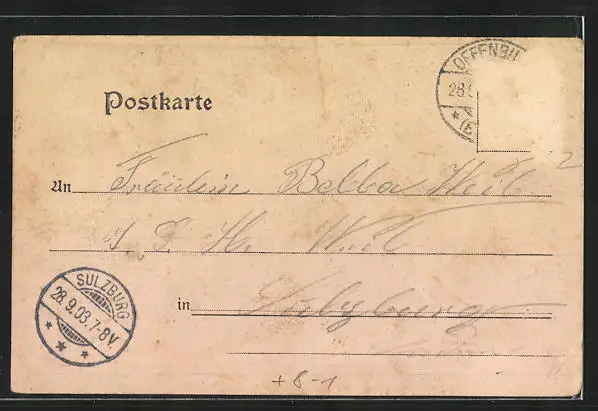 Postkarte
OFFENBU
28.9
An Fräulein Bella Weil
Weil
in Sulzburg
SULZBURG
28.9.03.7-8V.
+8-1